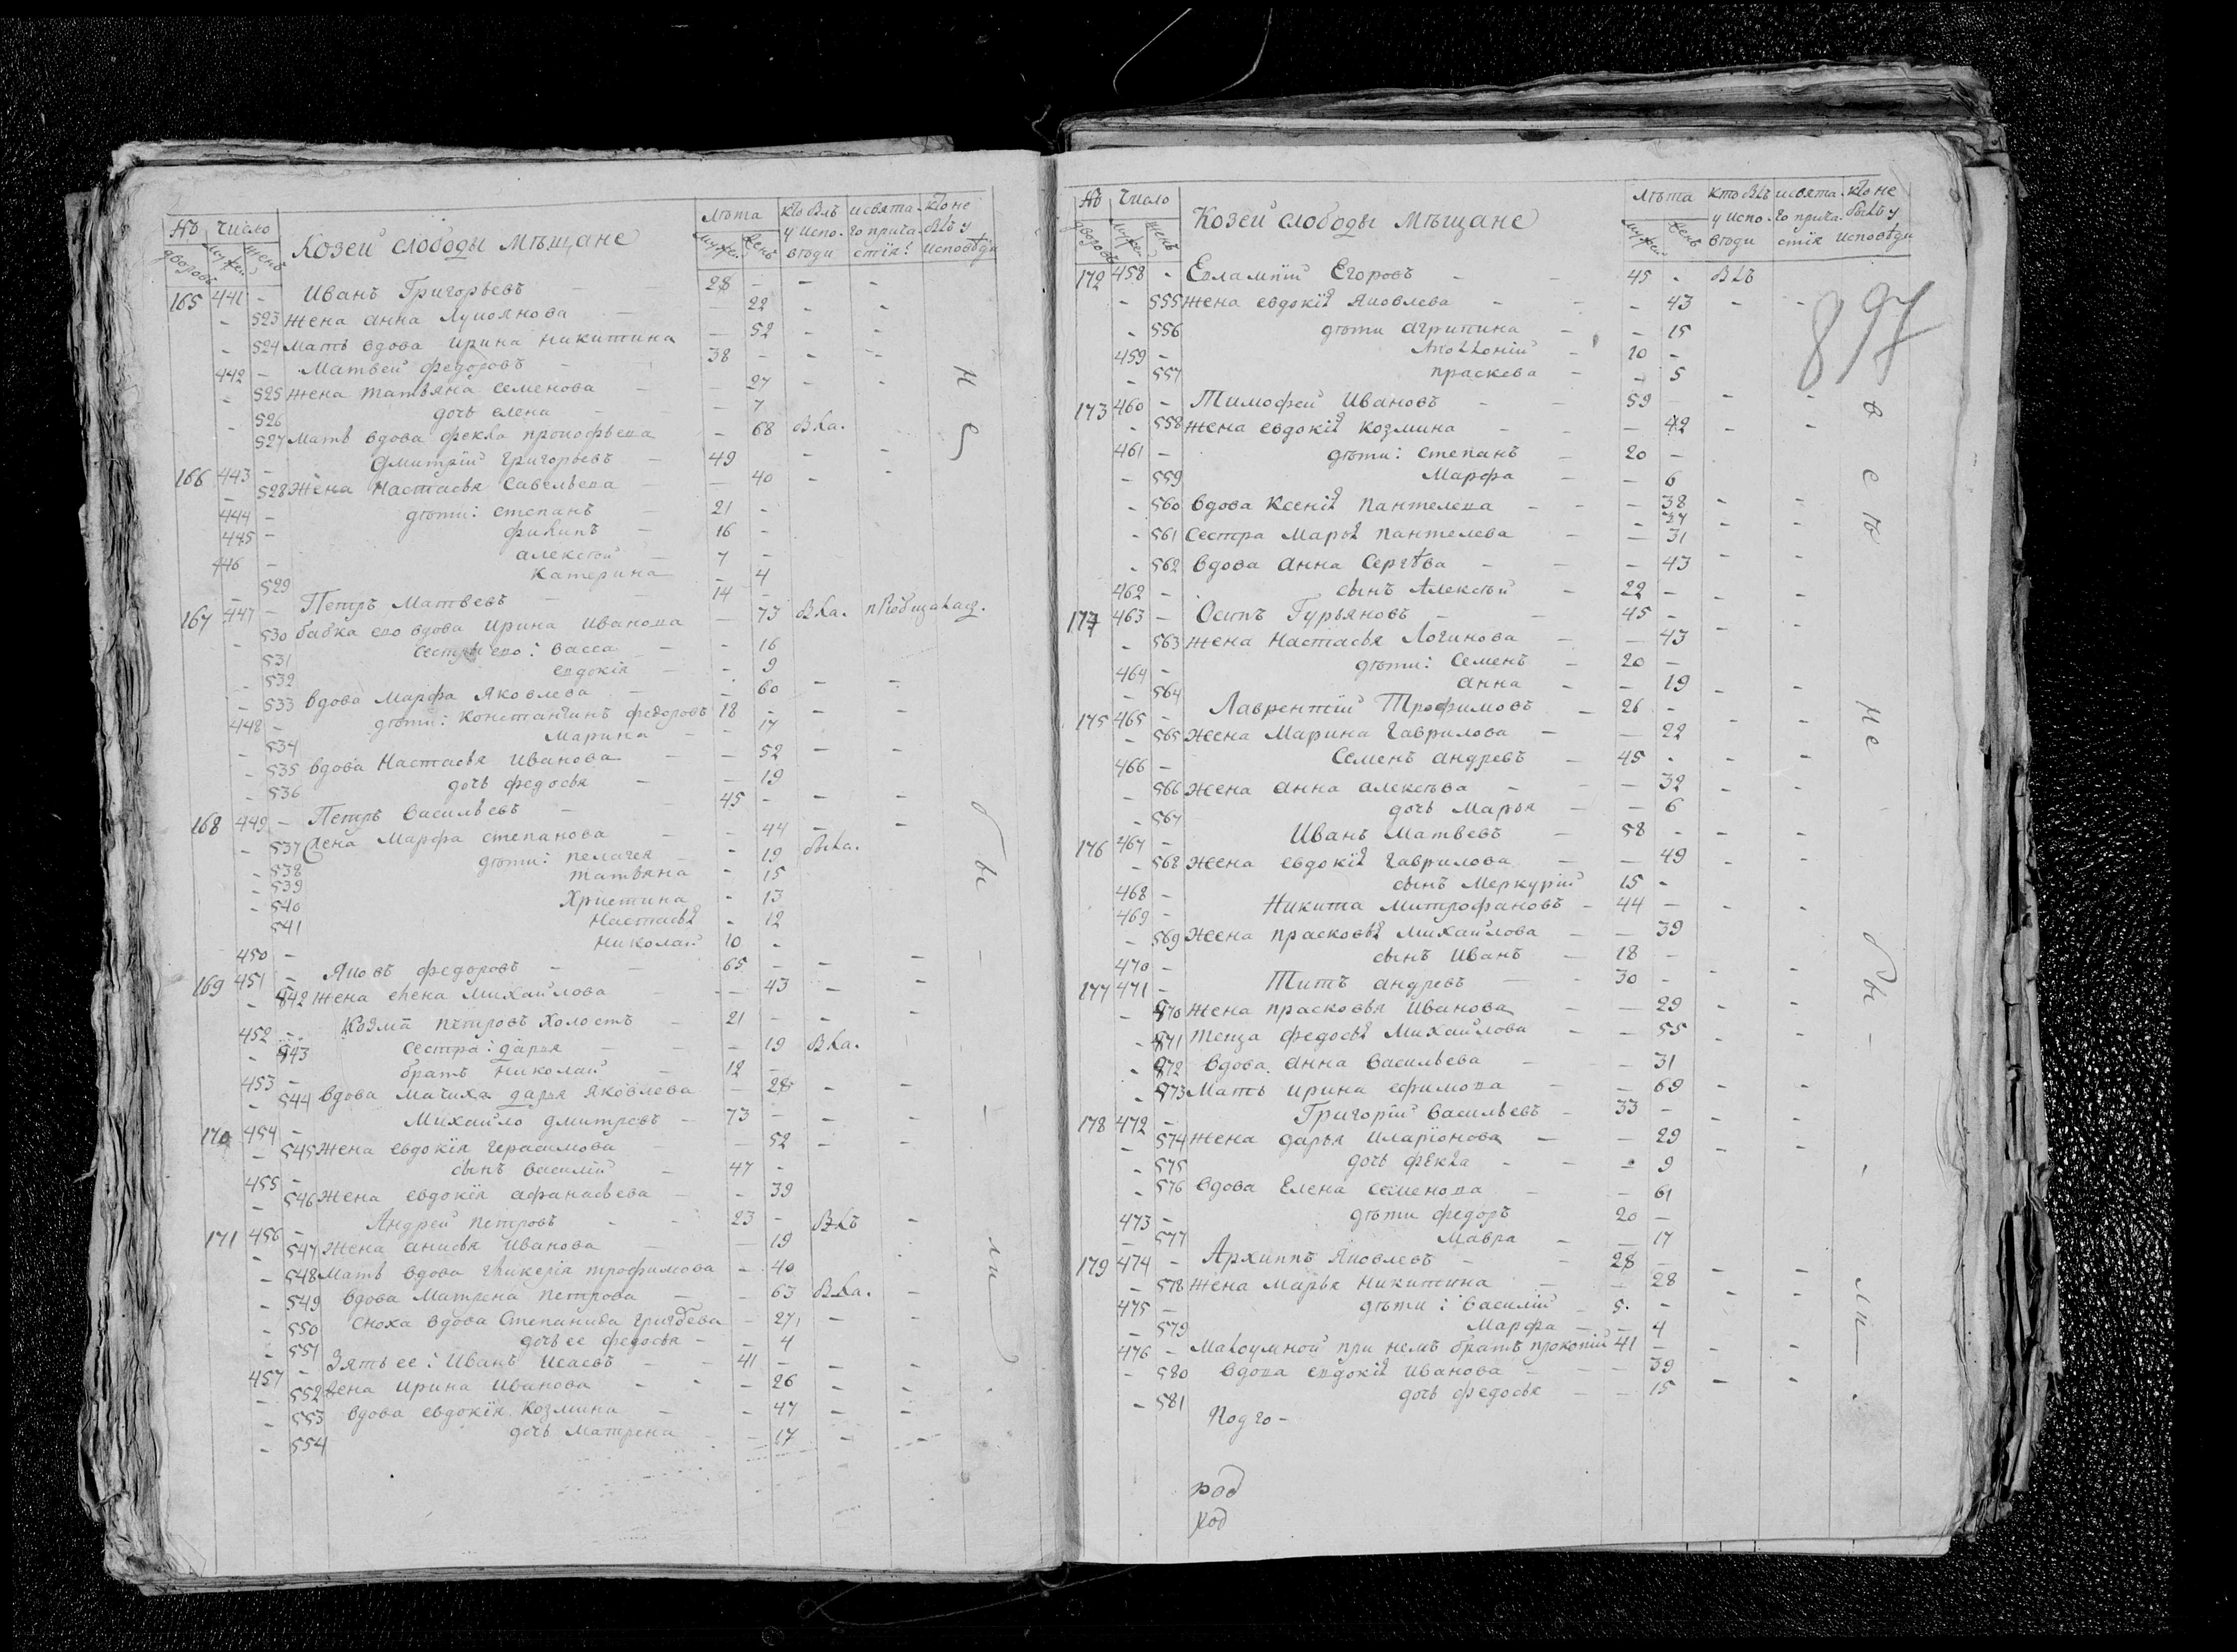 № Число Козей слободы мѣщане лѣта кто былъ и свята- кто не
дворовъ мужей женъ мужей женъ у испо- го прича- былъ у
вѣди стія: исповѣди
165 441 - Иванъ Григорьевъ - 28 - - -
- 523 жена анна Лупоянова - 22 - -
- 524 мать вдова ирина никитина - 52 - -
442 - Матвей федоровъ - 38 - - -
- 525 жена татьяна семенова - 27 - -
- 526 дочь елена - 7
- 527 мать вдова фекла прокофьева - 68 была.
166 443 - Дмитрій Григорьевъ - 49 - -
- 528 Жена Настасья савельева - 40 - -
444 - дѣти: степанъ - 21 -
445 - филипъ - 16 -
446 - алексѣй - 7 -
- 529 катерина - 4
167 447 - Петръ Матвевъ - 14 -
- 530 бабка ево вдова ирина иванова - 73 была. приобщалас.
531 сестры ево: васса - 16
- 532 евдокія - 9
- 533 вдова Марфа Яковлева - 60 - -
448 - дѣти: константинъ федоровъ 18 - - -
- 534 Марина - 17
- 535 вдова Настасья иванова - 52 - -
- 536 дочь федосья - 19
168 449 - Петръ васильевъ - 45 - - -
- 537 жена марфа степанова - 44 - -
- 538 дѣти: пелагея - 19 была.
- 539 татьяна - 15
- 540 Христина - 13
541 Настасья - 12
450 - николай 10 -
169 451 - Яковъ федоровъ - 65 - - -
- 542 жена елена михайлова - 43 - -
452 - Козма петровъ холостъ - 21 - - -
- 543 сестра: дарья - 19 была.
453 - братъ николай - 12 -
- 544 вдова мачиха дарья яковлева - 28 - -
170 454 - михайло дмитревъ - 73 - - -
- 545 жена евдокія герасимова - 52 - -
455 - сынъ василій - 47 -
- 546 жена евдокія афанасьева - 39
171 456 - Андрей петровъ - 23 - былъ -
- 547 жена анисья иванова - 19
- 548 мать вдова гликерія трофимова - 40
- 549 вдова матрена петрова - 63 была. -
- 550 сноха вдова степанида - 27 - -
- 551 дочь ее федосья - 4
457 - Зять ее: иванъ исаевъ - 41 - - -
- 552 жена ирина иванова - 26 - -
- 553 вдова евдокія козмина - 47 - -
- 554 дочь матрена - 17 - -
не бы - ли
№ Число Козей слободы мѣщане лѣта кто былъ и свята- кто не
дворовъ мужей женъ мужей женъ у испо- го прича- былъ у
вѣди стія исповѣди
897
172 458 - Евлампій Егоровъ - 45 - былъ
- 555 жена евдокія яковлева - 43 - -
- 556 дѣти агрипина - 15
459 - Аполлоній - 10 -
- 557 праскева - 5
173 460 - Тимофей Ивановъ - 59 - -
- 558 жена евдокія козмина - 42 - -
461 - дѣти: степанъ - 20 -
- 559 Марфа - 6
- 560 вдова ксенія пантелева - 38 - -
27
- 561 сестра марья пантелева - 31 - -
- 562 вдова анна сергѣва - 43 - -
462 - сынъ алексѣй - 22 - - -
174 463 - Осипъ Гурьяновъ - 45 - - -
- 563 жена настасья логинова - 43
464 - дѣти: семенъ - 20 -
- 564 анна - 19 - -
175 465 - Лаврентій Трофимовъ - 26 -
- 565 жена марина гаврилова - 22 - -
466 - семенъ андревъ - 45 - - -
- 566 жена анна алексѣва - 32 - -
- 567 дочь марья - 6
176 467 - Иванъ Матвевъ - 58 - - -
- 568 жена евдокія гаврилова - 49 - -
468 - сынъ меркурій 15 -
469 - Никита митрофановъ - 44 - - -
- 569 жена прасковья михайлова - 39
470 - сынъ иванъ - 18 -
177 471 - Титъ андревъ - 30 - - -
- 570 жена прасковья иванова - 29 - -
- 571 теща федосья михайлова - 55 - -
- 572 вдова анна васильева - 31
- 573 мать ирина ефимова - 69 - -
178 472 - Григорій васильевъ - 33 - - -
- 574 жена дарья иларіонова - 29 - -
- 575 дочь фекла - 9
- 576 вдова елена семенова - 61
473 - дѣти федоръ 20 -
- 577 мавра - 17
179 474 - Архиппъ яковлевъ - 28 - - -
- 578 жена марья никитина - 28 - -
475 - дѣти: василій - 5 -
- 579 Марфа - 4
476 - Малоумной при немъ братъ прокопій 41 - - -
- 580 вдова евдокія иванова - 39 - -
- 581 дочь федосья - 15
Подго-
род
ход
всѣ не бы - ли